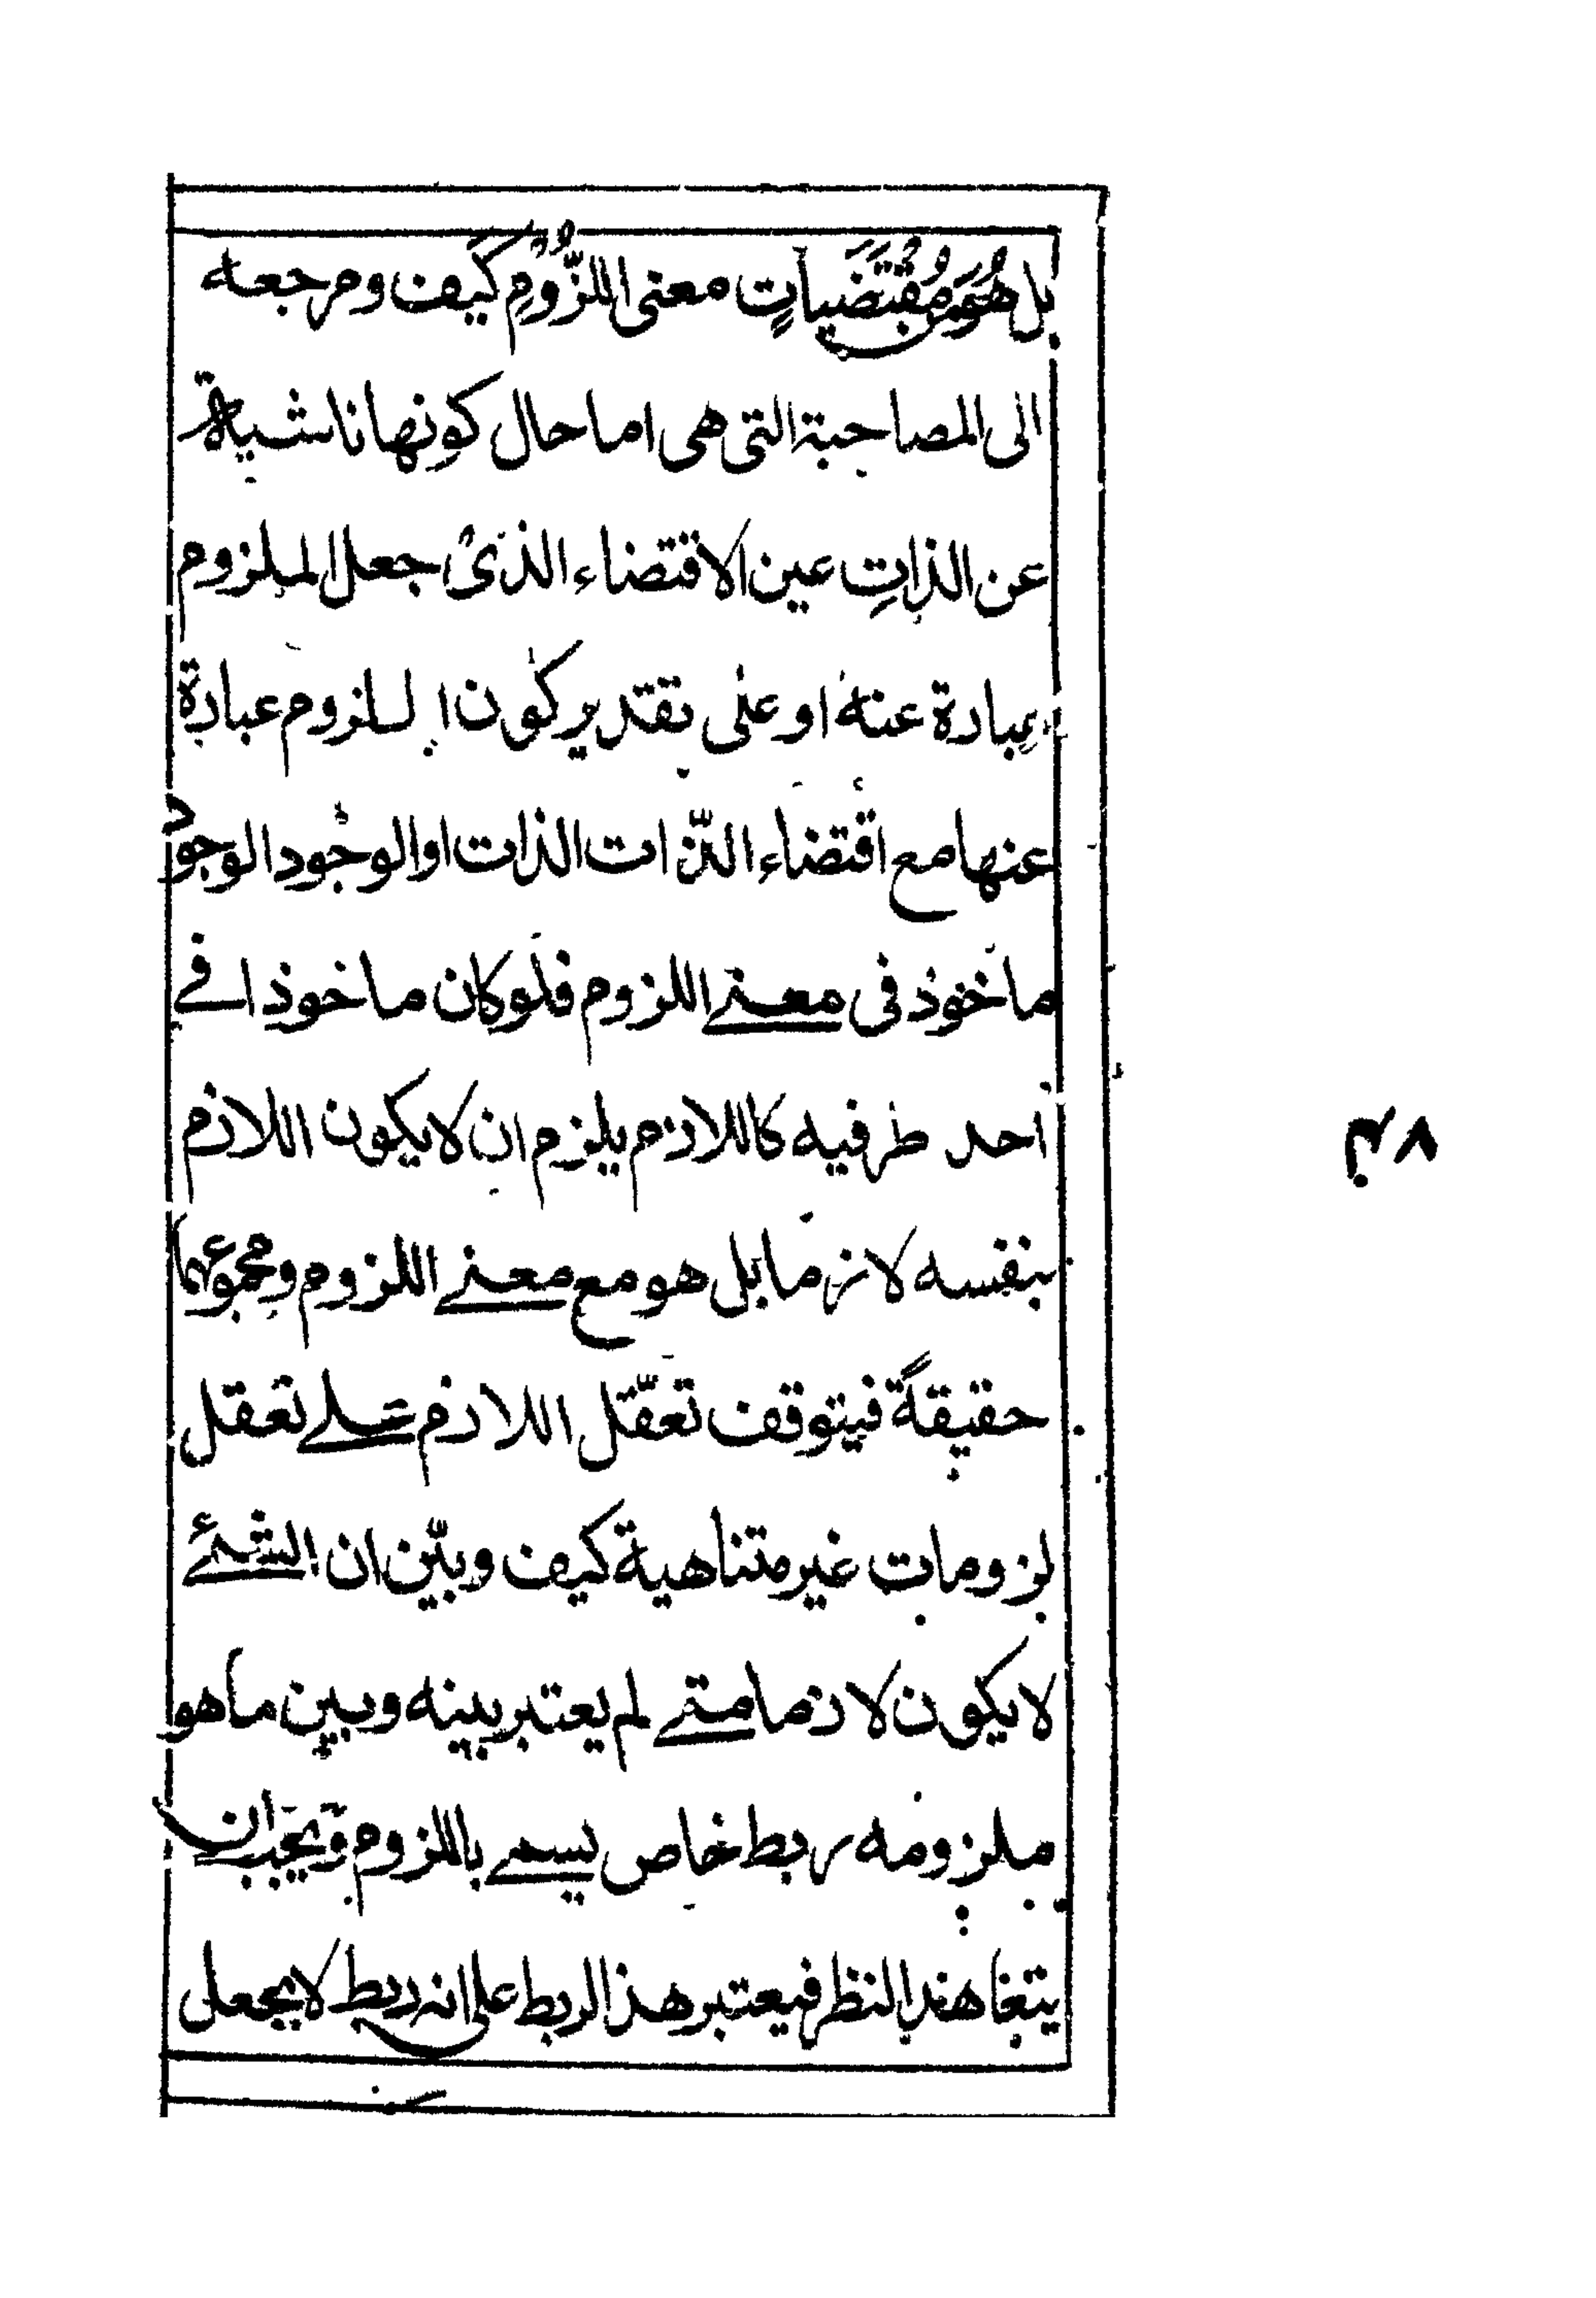 بل هُوَ من مُقْتَضَياتٍ معنى اللزُّومِ كيف ومرجعه
الى المصاحبة التى هى اما حال كونها ناشية
عن الذاتِ عين الاقتضاء الذى جعل الملزوم
عبارة عنه او على تقدير كون اللزوم عبارة
عنها مع اقتضاء الذات الذات او الوجود الوجود
ماخوذ فى معنے اللزوم فلو كان ماخوذا فے
احد طرفيه كاللازم يلزم ان لا يكون اللازم
بنفسه لازما بل هو مع معنے اللزوم ومجموعهما
حقيقةً فيتوقف تعقّل اللازم علے تعقل
لزومات غير متناهية كيف وبيّن ان الشئے
لا يكون لازما متے لم يعتبر بينه وبين ما هو
ملزومه ربط خاص يسمے باللزوم ويجب ان
هذا النظر فيعتبر هذا الربط على انه ربط لا يجعل